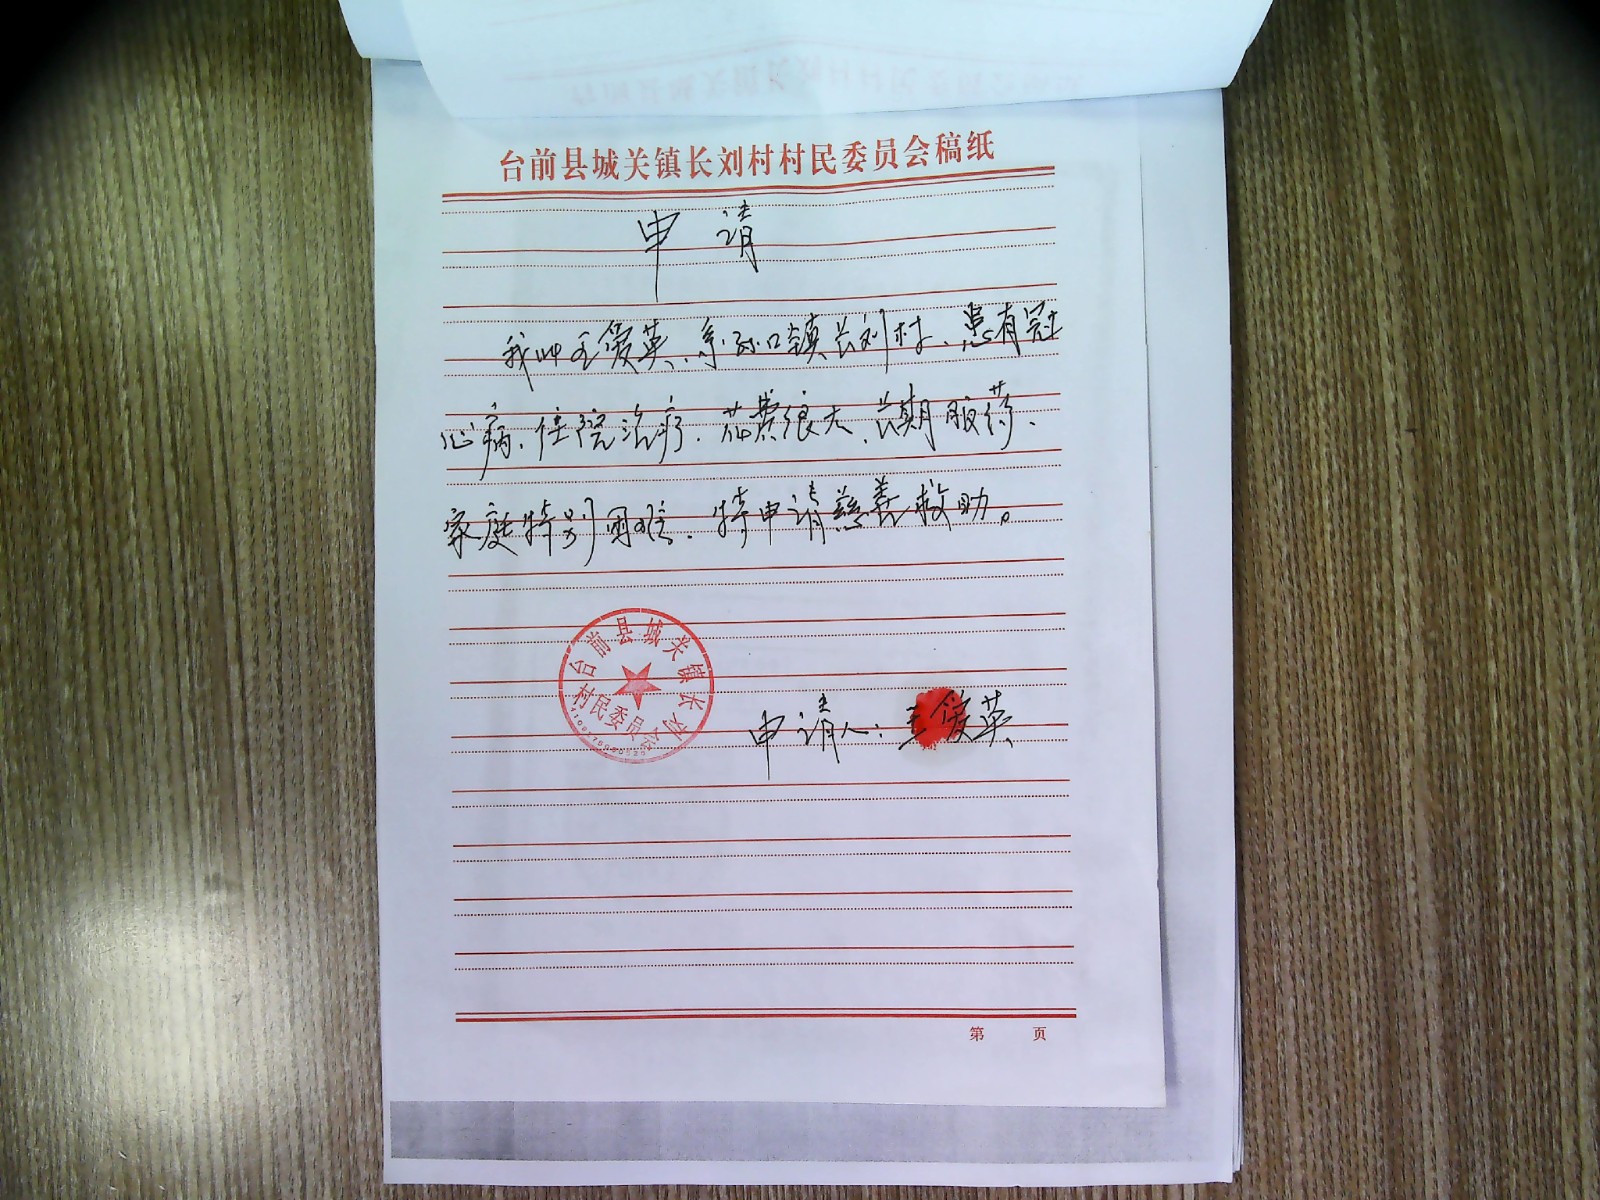 台前县城关镇长刘村村民委员会稿纸
申请
我叫王爱英、系孙口镇长刘村、患有冠
心病、住院治疗、花费很大、长期服药、
家庭特别困难、特申请慈善救助。
台前县城关镇长刘
村民委员会
申请人：王爱英
第 页